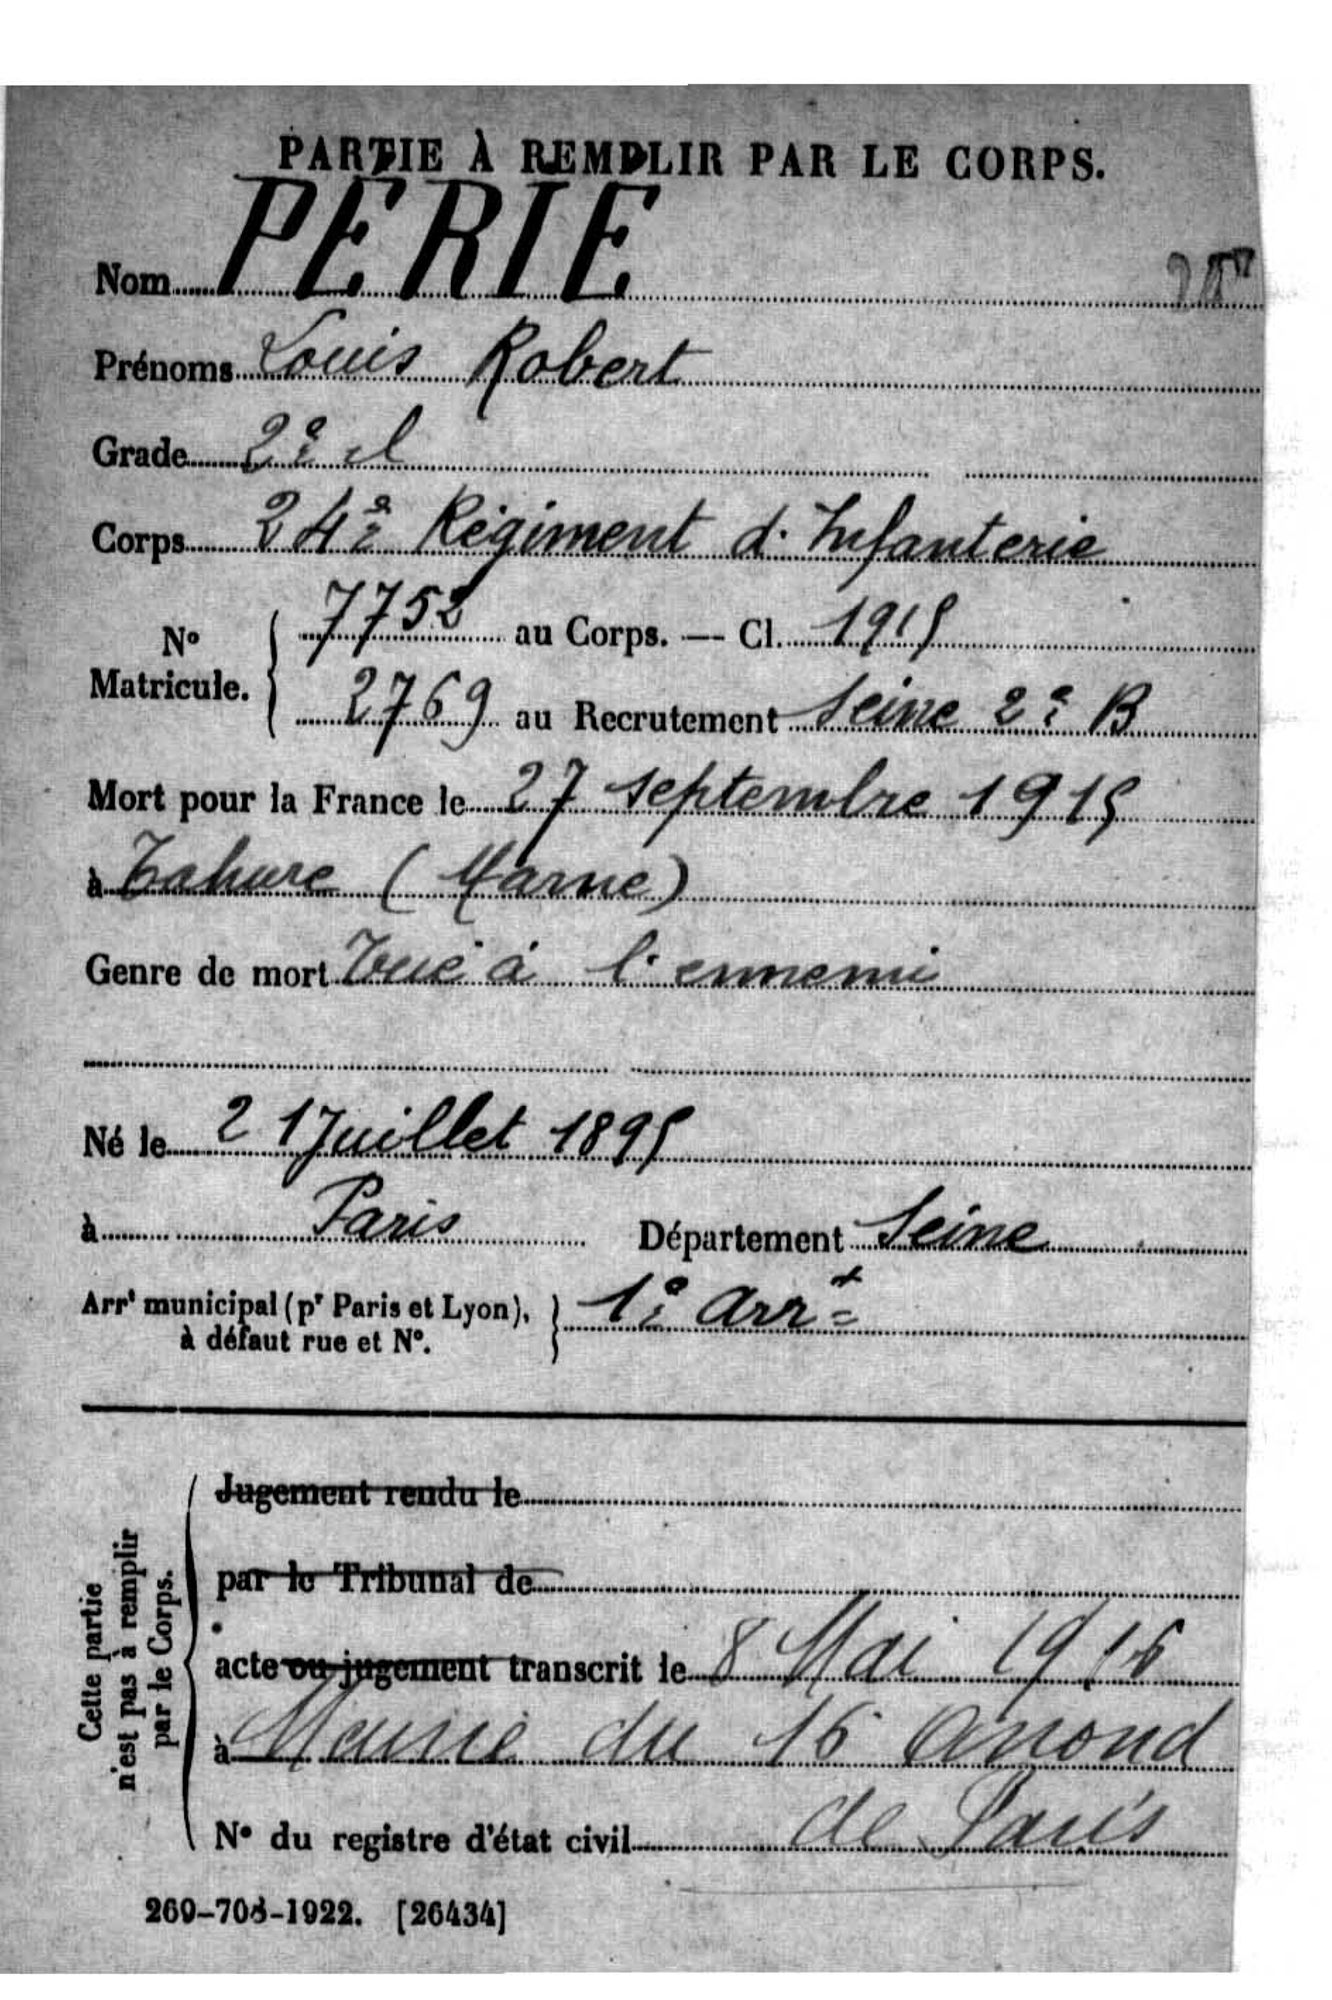 PARTIE À REMPLIR PAR LE CORPS.
Nom PERIE
Prénoms Louis Robert
Grade 2e cl
Corps 24e Régiment d'Infanterie
N° Matricule. 7752 au Corps. — Cl. 1915
2769 au Recrutement Seine 2e B
Mort pour la France le 27 Septembre 1915
à Tahure (Marne)
Genre de mort Tué à l'ennemi
Né le 21 Juillet 1895
à Paris Département Seine
Arrt municipal (pr Paris et Lyon), à défaut rue et N°. 1e arrt
Cette partie n'est pas à remplir par le Corps.
Jugement rendu le
par le Tribunal de
acte ou jugement transcrit le 8 Mai 1916
à Mairie du 16 Arrond
N° du registre d'état civil de Paris
269-708-1922. [26434]